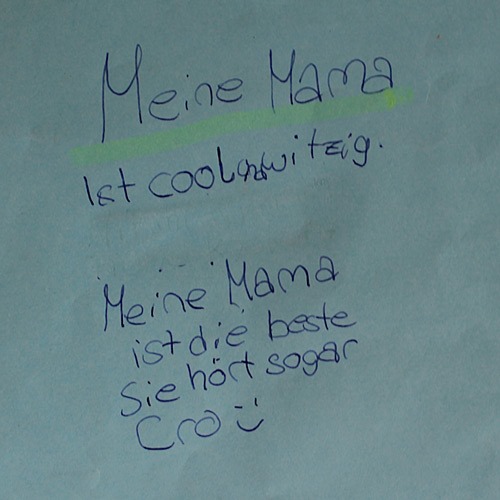 Meine Mama
Ist cool witzig.
Meine Mama
ist die beste
Sie hört sogar
Cro :)